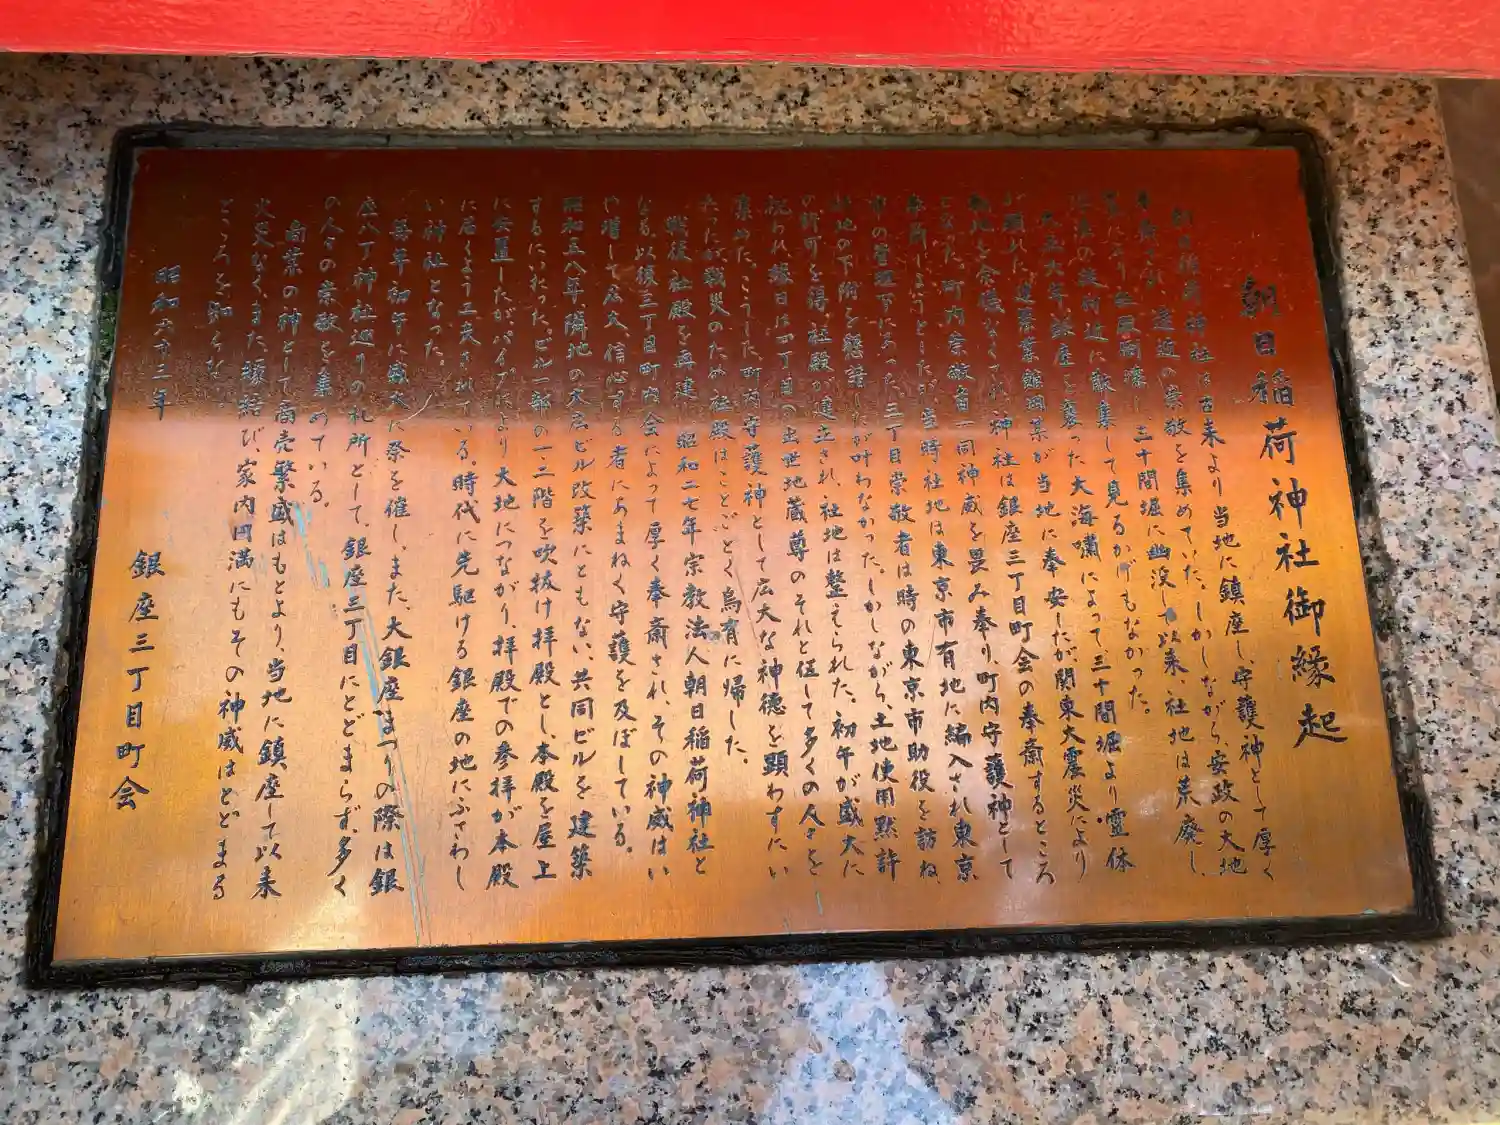 朝日稲荷神社御縁起
朝日稲荷神社は古来より当地に鎮座し、守護神として厚く
遠近の崇敬を集めていた。しかしながら、安政の大地
社殿倒壊し、三十間堀に幽没して以来、社地は荒廃し、
附近に散集して見るかげもなかった。
大正六年銀座を襲った大海嘯によって、三十間堀より霊体
が顕れた。建築業籠田某が当地に奉安したが関東大震災により
敷地を余儀なくされ、神社は銀座三丁目町会の奉斎するところ
となった。町内崇敬者一同神威を畏み奉り、町内守護神として
奉斎しようとしたが当時社地は東京市有地に編入され東京
市の管理下にあった。三丁目崇敬者は時の東京市助役を訪ね、
社地の下附を懇請したが叶わなかった。しかしながら、土地使用黙許
の許可を得、社殿が建立され、社地は整えられた。初午が盛大に
祝われ、縁日は四丁目の出世地蔵尊のそれと伍して多くの人々を
集めた。こうした、町内守護神として広大な神徳を顕わすにい
たったが戦災のため、社殿はことごとく烏有に帰した。
戦後社殿を再建し、昭和二七年宗教法人朝日稲荷神社と
なる。以後三丁目町内会によって厚く奉斎され、その神威はい
や増して広大、信心する者にあまねく守護を及ぼしている。
昭和五八年、隣地の大広ビル改築にともない、共同ビルを建築
するにいたった。ビル一部の一二階を吹抜け拝殿とし、本殿を屋上
に安置したが、パイプにより大地につながり、拝殿での参拝が本殿
に届くよう工夫されている。時代に先駆ける銀座の地にふさわし
い神社となった。
毎年初午に盛大に祭を催し、また、大銀座まつりの際は銀
座八丁神社巡りの札所として、銀座三丁目にとどまらず、多く
の人々の崇敬を集めている。
商業の神として商売繁盛はもとより、当地に鎮座して以来
火災なく、また縁結び、家内円満にもその神威はとどまる
ところを知らない
昭和六十三年
銀座三丁目町会